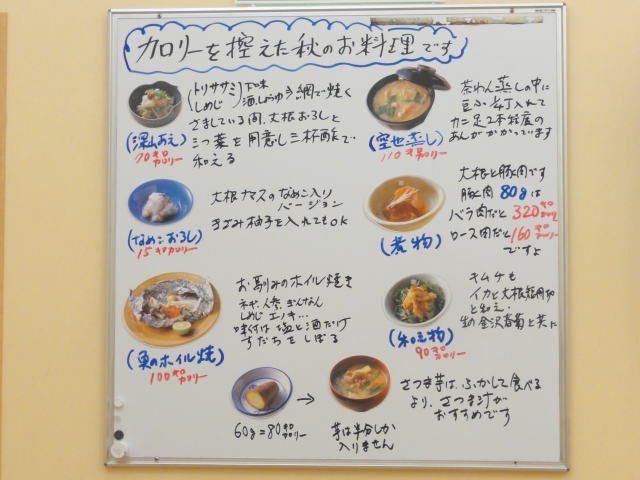 カロリーを控えた秋のお料理です
トリササミ 下味
しめじ 酒、しょうゆ 網で焼く
さましている間、大根おろしと
三つ葉を用意し三杯酢で
和える
(深山あえ)
70キロカロリー
茶わん蒸しの中に
豆ふ1/4丁入れて
カニ足2本程度の
あんがかかっています
(空也蒸し)
110キロカロリー
大根ナマスのなめこ入り
バージョン
きざみ柚子を入れてもOK
(なめこおろし)
15キロカロリー
大根と豚肉です
豚肉80gは
バラ肉だと320キロカロリー
ロース肉だと160キロカロリー
ですよ
(煮物)
お馴みのホイル焼き
ネギ、人参、ぎんなん
しめじ エノキ…
味付は塩と酒だけ
すだちをしぼる
(魚のホイル焼)
100キロカロリー
キムチも
イカと大根短冊切
と和え、
生の金沢春菊と共に
(和え物)
90キロカロリー
60g=80キロカロリー
→
芋は半分しか
入りません
さつま芋は、ふかして食べる
より、さつま汁が
おすすめです